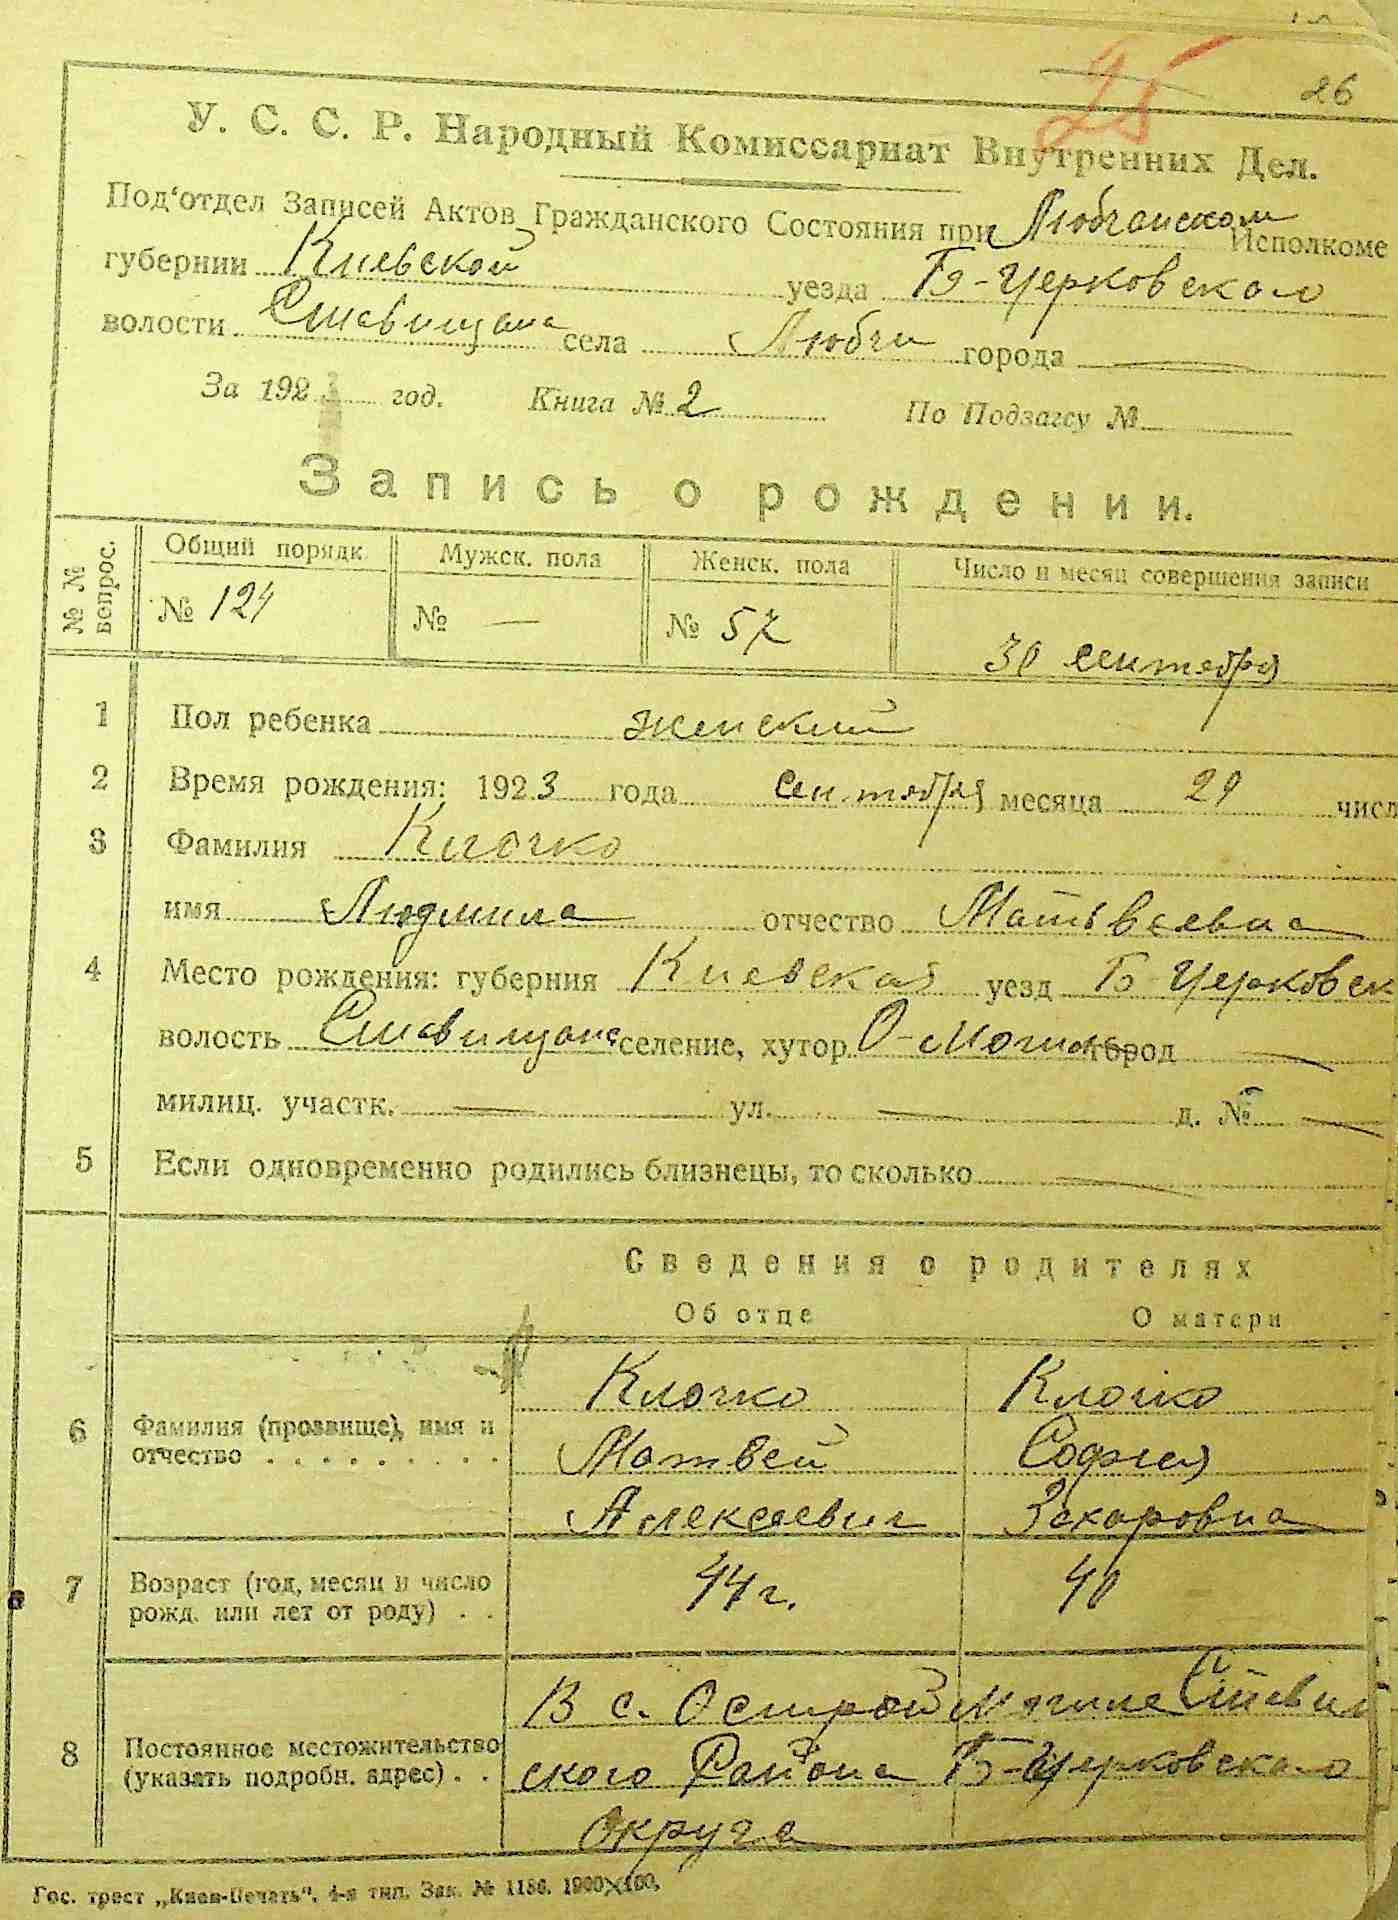 26
25
У. С. С. Р. Народный Комиссариат Внутренних Дел.
Под'отдел Записей Актов Гражданского Состояния при Любчанском Исполкоме
губернии Киевской уезда Б-Церковского
волости села Любчи города —
За 1923 год. Книга № 2 По Подзагсу №
Запись о рождении.
№ № вопрос.
Общий порядк. Мужск. пола Женск. пола Число и месяц совершения записи
№ 124 № — № 57 30 сентября
1 Пол ребенка женский
2 Время рождения: 1923 года сентября месяца 29 числ
3 Фамилия Клочко
имя Людмила отчество Матвеевна
4 Место рождения: губерния Киевская уезд Б-Церковск
волость Ставищанс селение, хутор О-Могила город —
милиц. участк. — ул. — д. № —
5 Если одновременно родились близнецы, то сколько —
Сведения о родителях
Об отце О матери
6 Фамилия (прозвище), имя и отчество
Клочко Клочко
Матвей София
Алексеевич Захаровна
7 Возраст (год, месяц и число рожд. или лет от роду)
44 г. 40
8 Постоянное местожительство (указать подробн. адрес)
В с. Острой Могиле Ставищ
ского Района Б-Церковского
Округа
Гос. трест „Киев-Печать“, 4-я тип. Зак. № 1186. 1900×100.